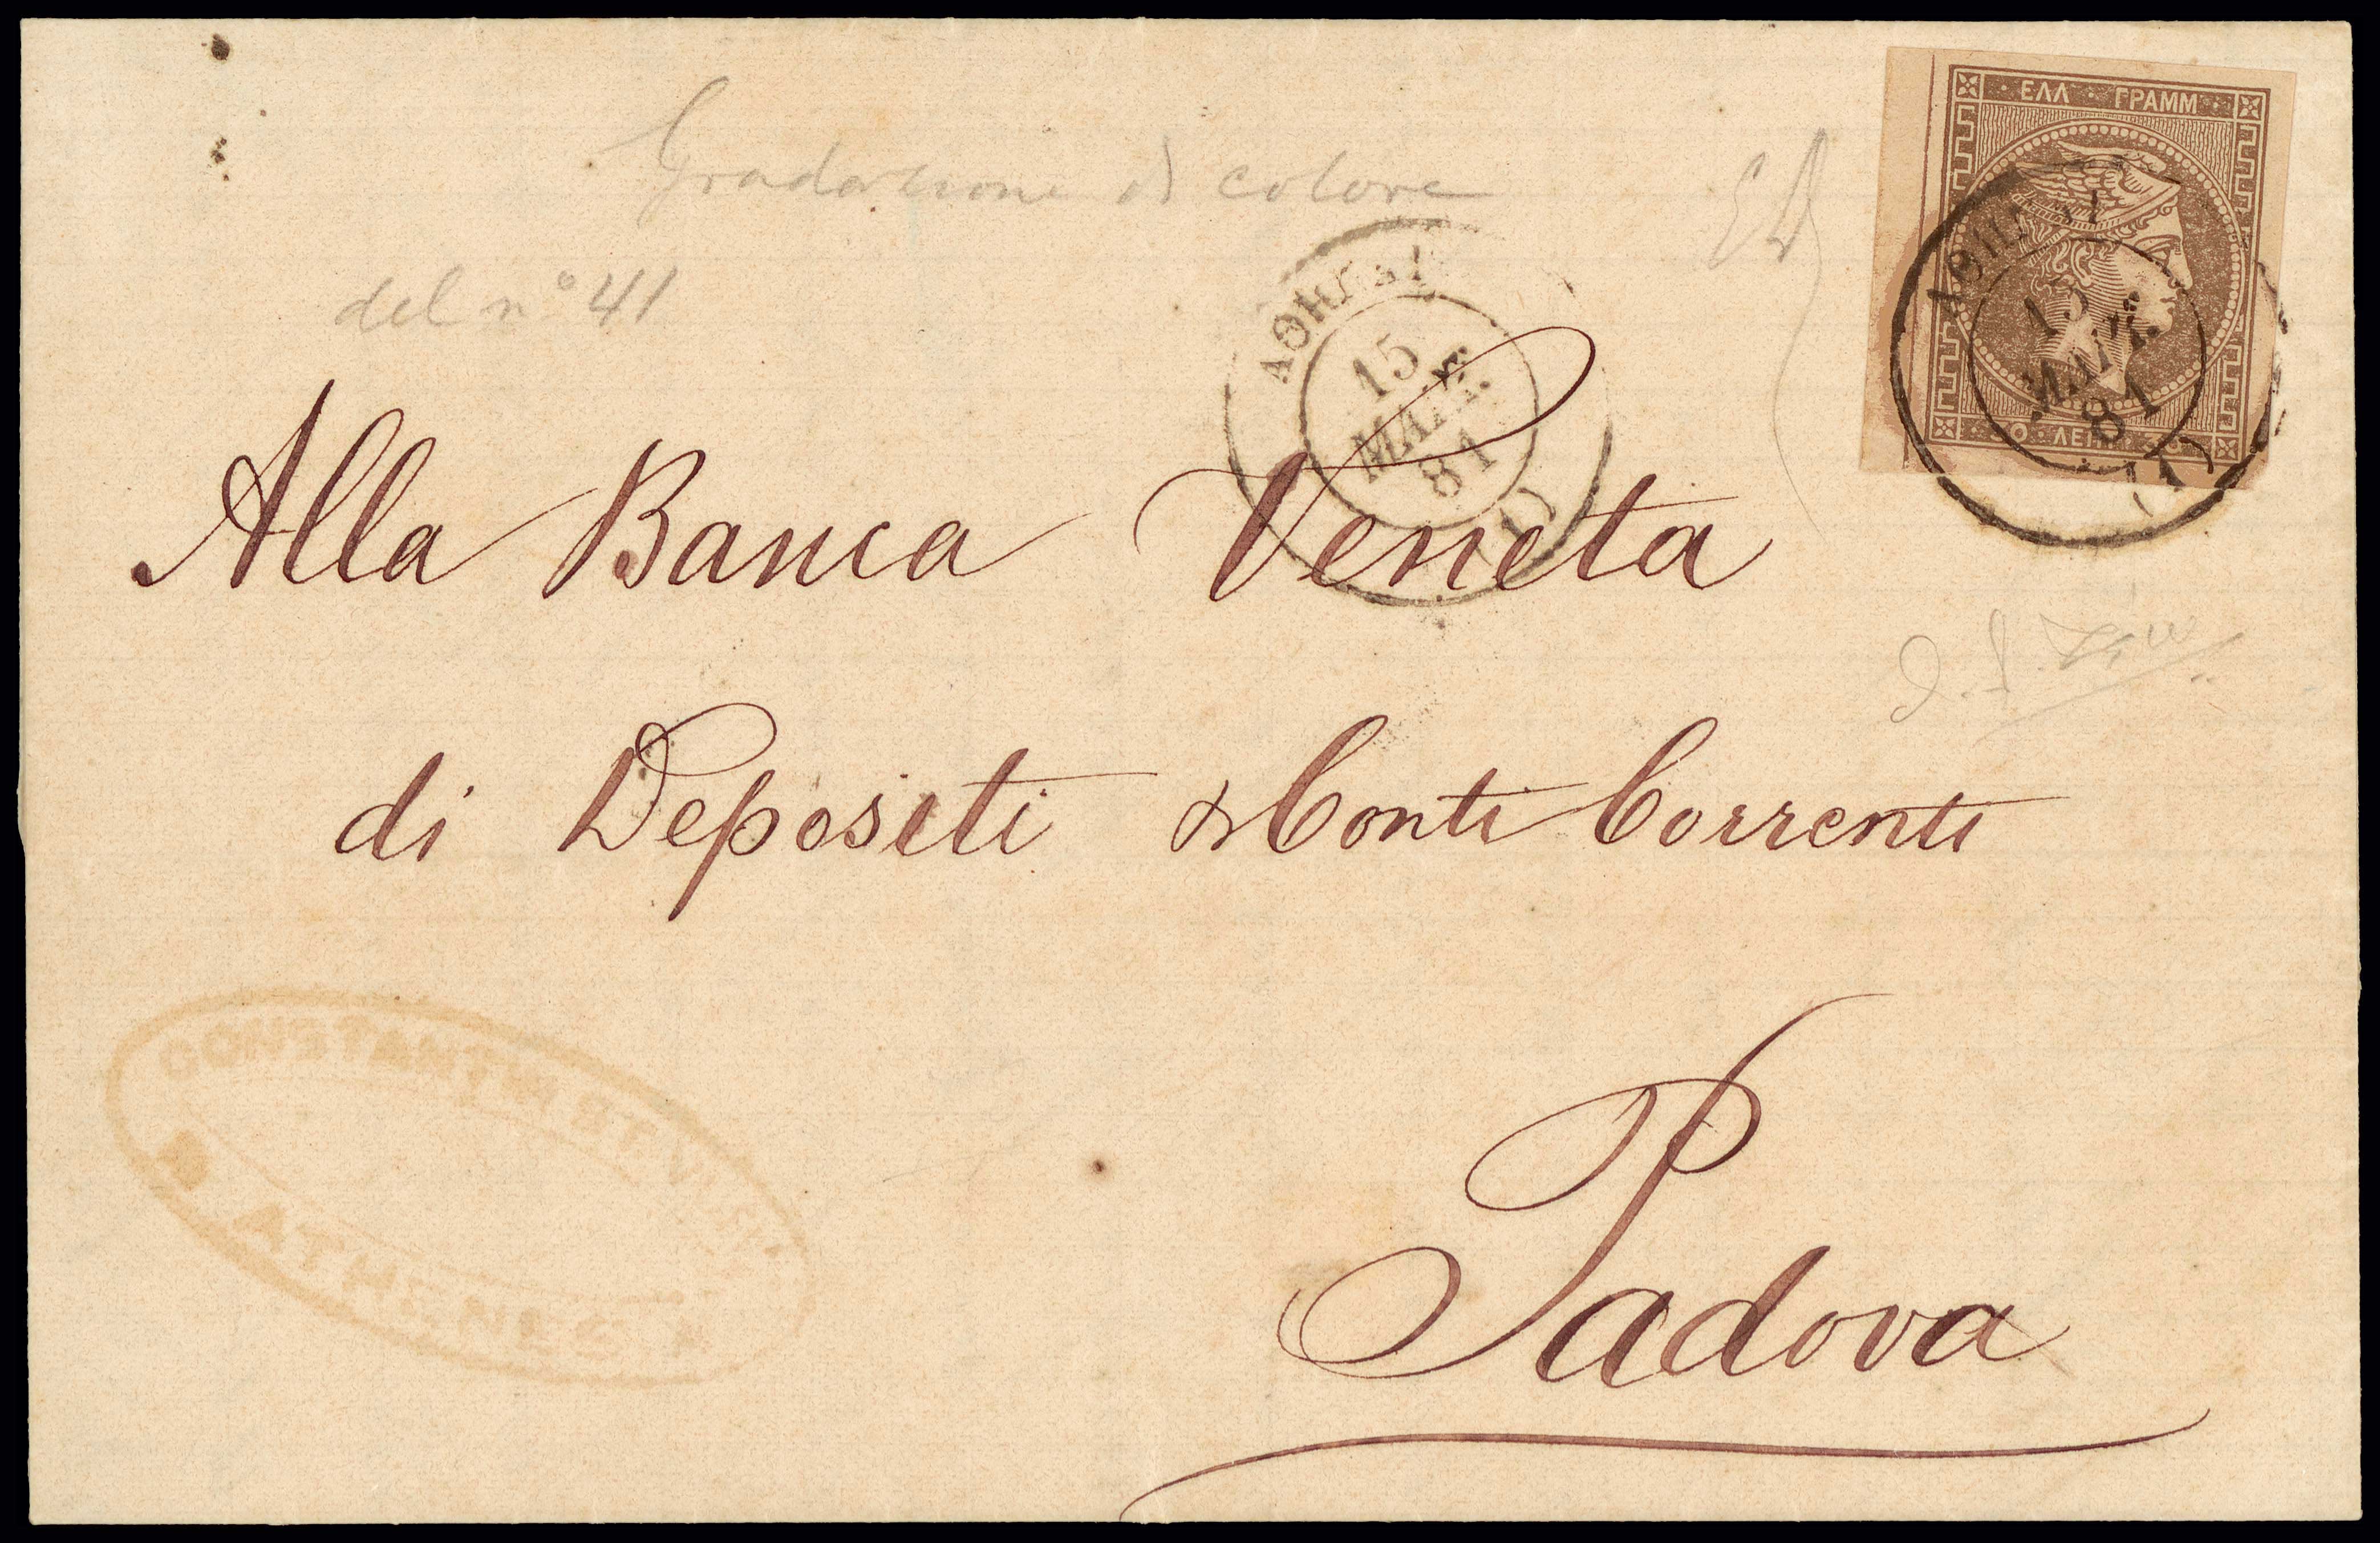 Gradazione di colore
del n° 41
ΕΛΛ ΓΡΑΜΜ
30 ΛΕΠΤ 30
ΑΘΗΝΑΙ
15
ΜΑΡΤ.
81
(1)
ΑΘΗΝΑΙ
15
ΜΑΡΤ.
81
(1)
Alla Banca Veneta
di Depositi & Conti Correnti
Padova
CONSTANTIN
ATHÈNES